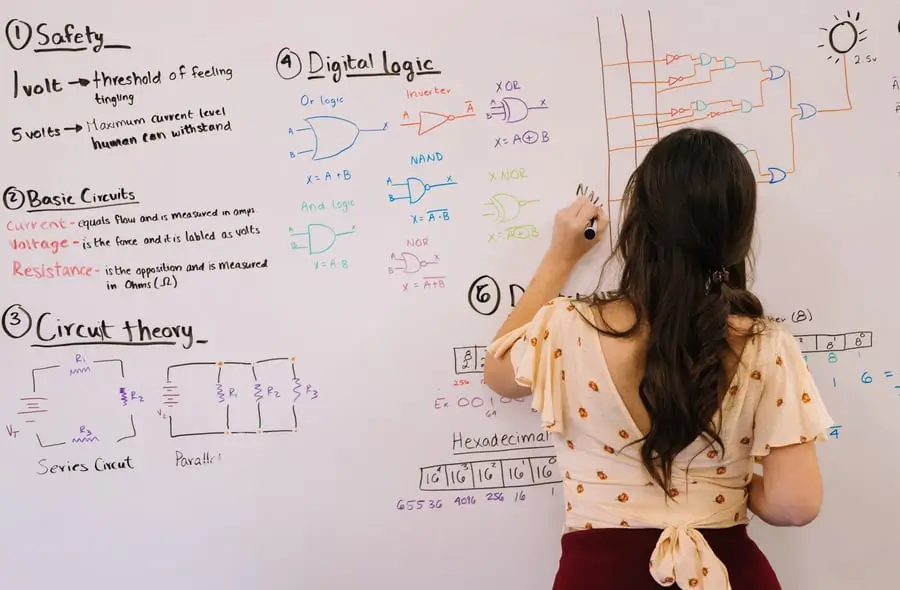 ① Safety_
1 volt → threshold of feeling
tingling
5 volts → Maximum current level
human can withstand
② Basic Circuits
Current - equals flow and is measured in amps
Voltage - is the force and it is labled as volts
Resistance - is the opposition and is measured
in Ohms (Ω)
③ Circut theory_
R₁
R₂
R₃
V_T
Series Circut
R₁ R₂ R₃
④ Digital logic
Or logic
A
B
X
X = A + B
Inverter
A Ā
XOR
A
B
X
X = A ⊕ B
NAND
A
B
X
X = A̅·̅B̅
And logic
X = A·B
X NOR
NOR
A
B
X
X = A̅+̅B̅
⑤
Ex 00100
64
Hexadecimal
16⁴ 16³ 16² 16¹ 16⁰
65536 4096 256 16 1
(8)
8¹ 8⁰
8 1
1 6 =
4